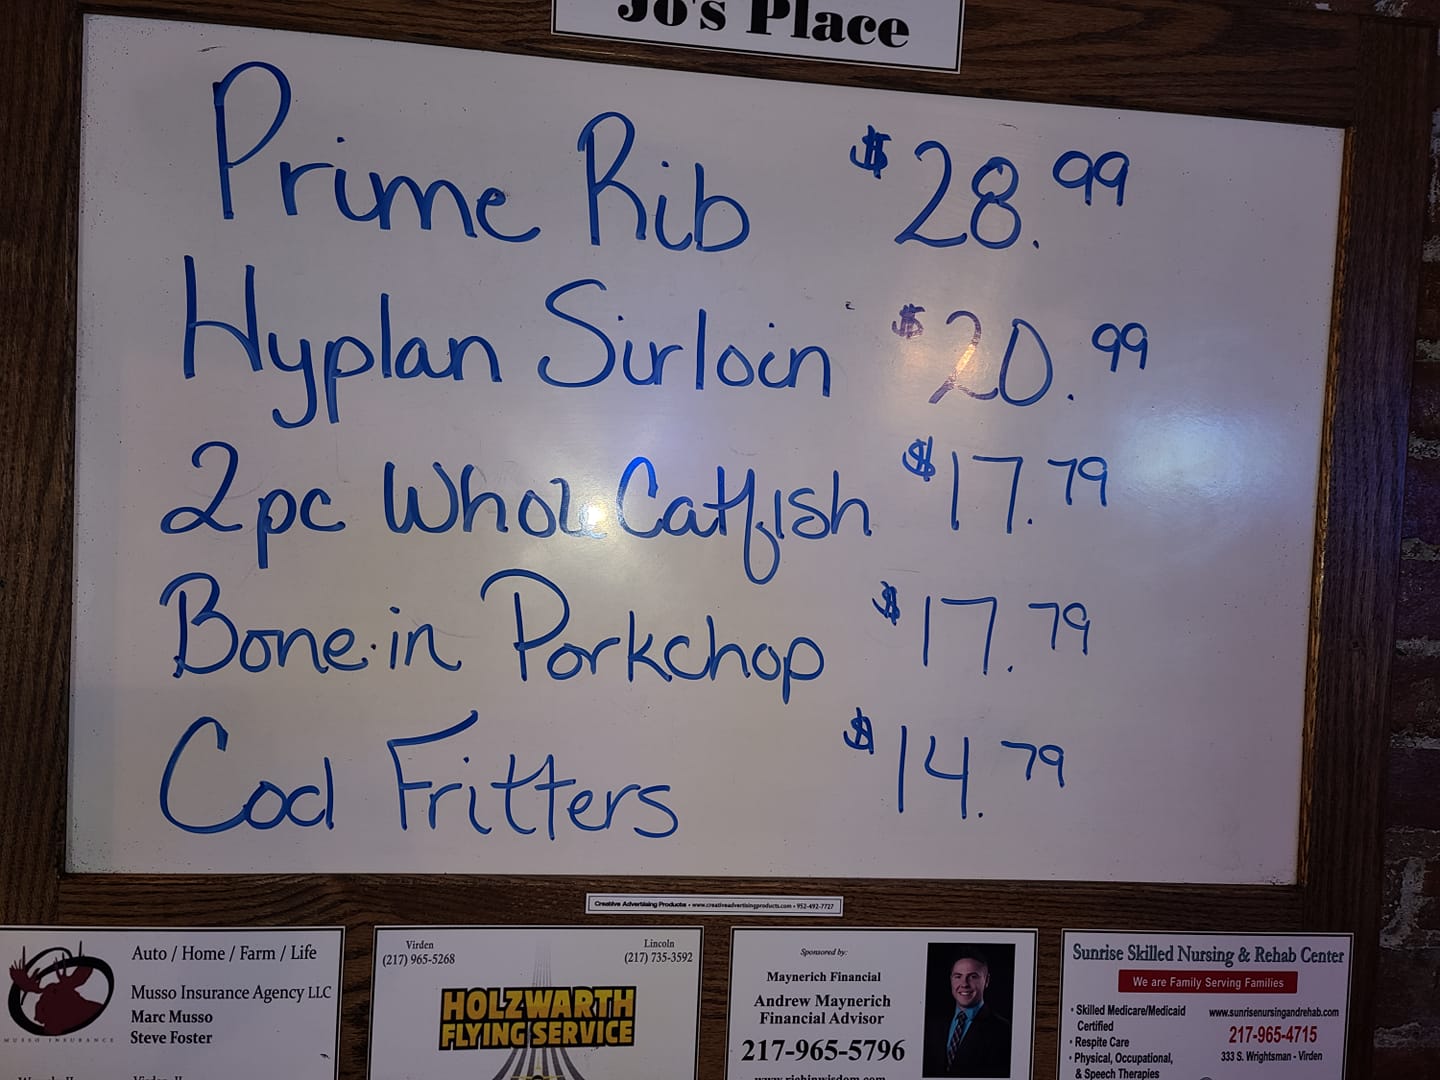 Jo's Place
Prime Rib $28.99
Hyplan Sirloin $20.99
2pc Whole Catfish $17.79
Bone-in Porkchop $17.79
Cod Fritters $14.79
Creative Advertising Products • www.creativeadvertisingproducts.com • 952-492-7727
Auto / Home / Farm / Life
Musso Insurance Agency LLC
Marc Musso
Steve Foster
MUSSO INSURANCE
Virden
(217) 965-5268
Lincoln
(217) 735-3592
HOLZWARTH
FLYING SERVICE
Sponsored by:
Maynerich Financial
Andrew Maynerich
Financial Advisor
217-965-5796
www.richinwisdom.com
Sunrise Skilled Nursing & Rehab Center
We are Family Serving Families
• Skilled Medicare/Medicaid
Certified
• Respite Care
• Physical, Occupational,
& Speech Therapies
www.sunrisenursingandrehab.com
217-965-4715
333 S. Wrightsman - Virden